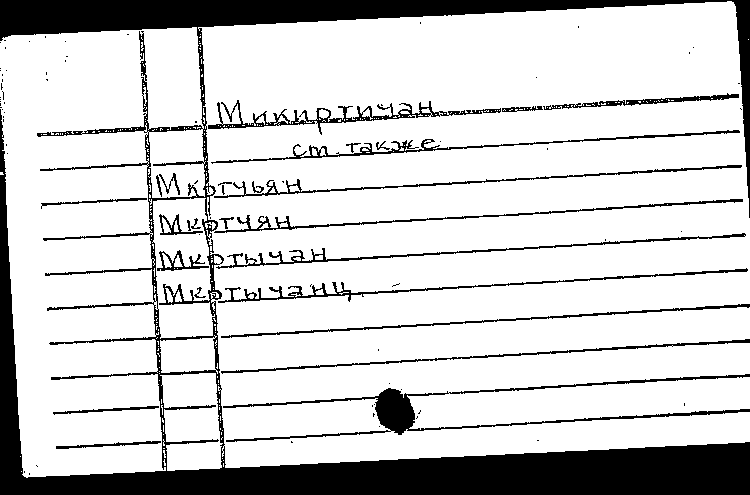 Микиртичан
см. также
Мкртчьян
Мкртчян
Мкртычан
Мкртычанц